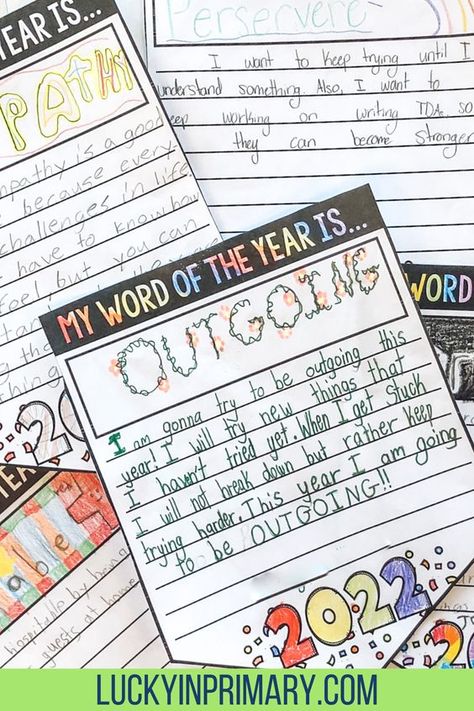 YEAR IS...
PATHY
mpathy is a good
because every
challenges in life.
have to know how
feel, but you can
Perservere
I want to keep trying until I
understand something. Also, I want to
keep working on writing TDAs, so
they can become stronger
MY WORD OF THE YEAR IS...
OUTGOING
I am gonna try to be outgoing this
year! I will try new things that
I haven't tried yet. When I get stuck
I will not break down but rather keep
trying harder. This year I am going
to be OUTGOING!!
2022
WORD
hospitable by being
guests at home
20
LUCKYINPRIMARY.COM